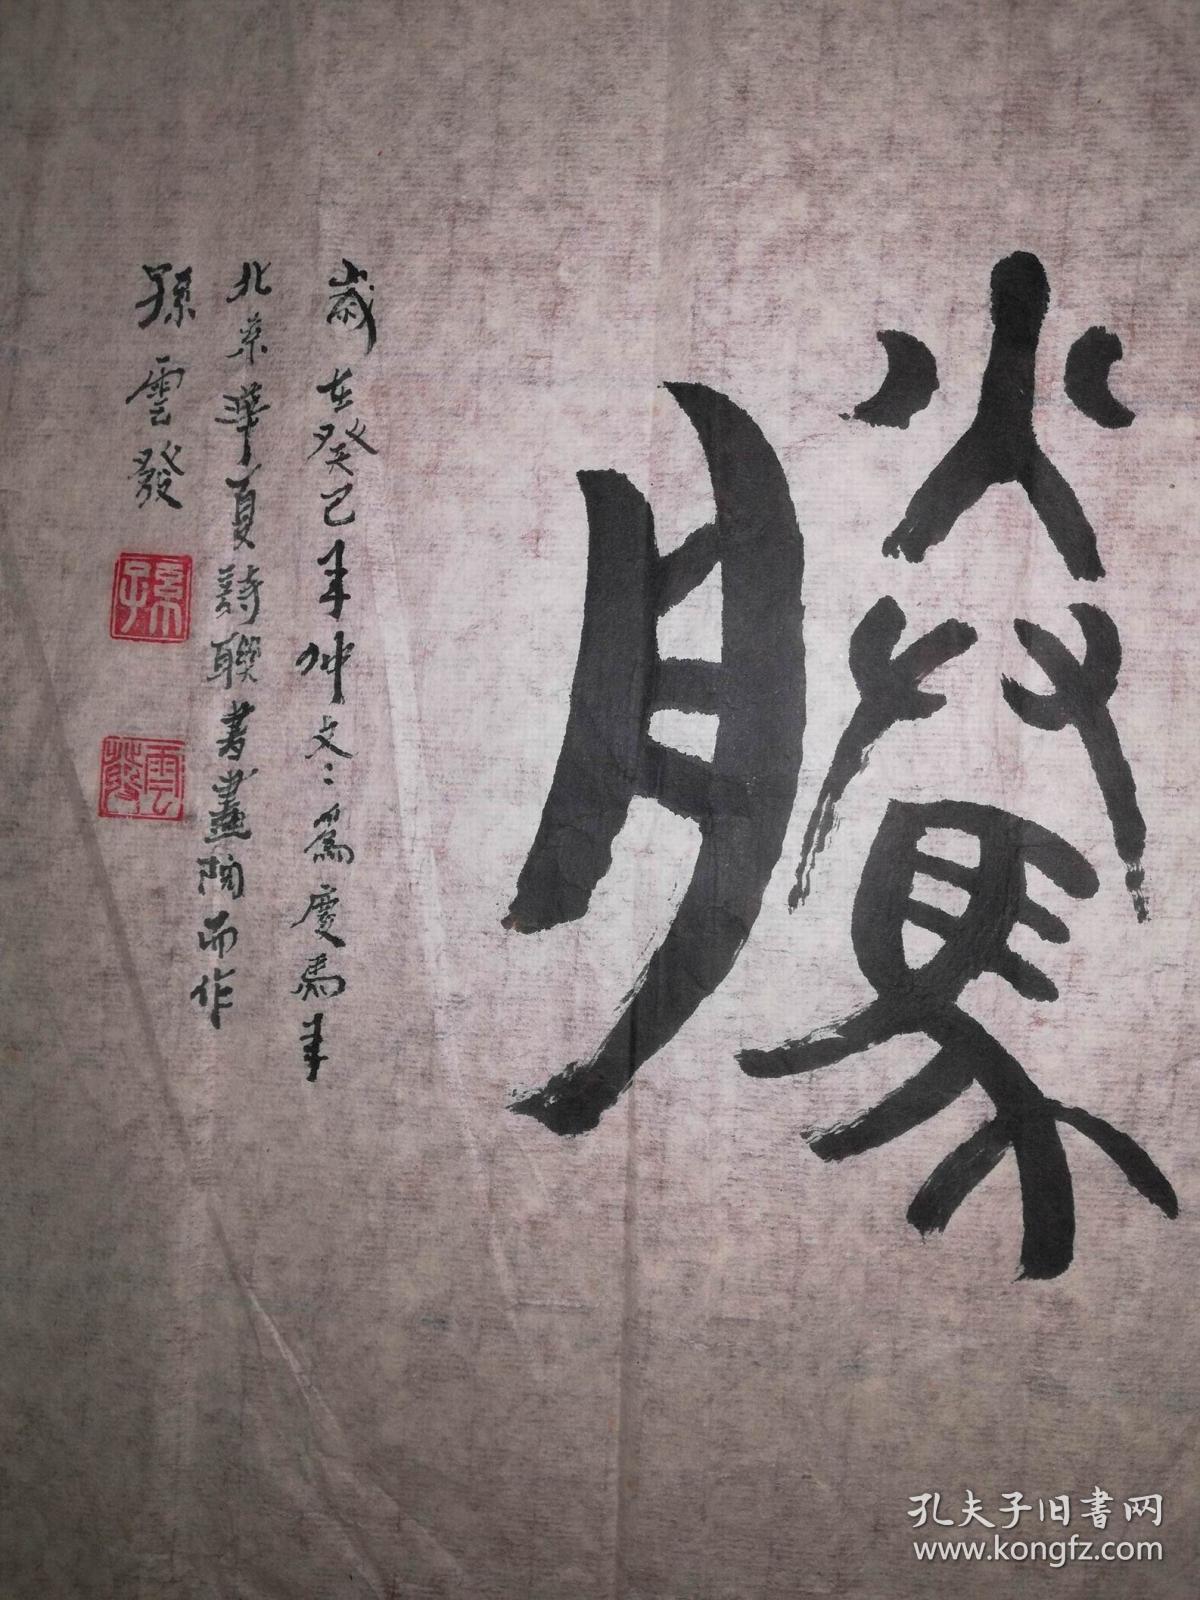 騰
歲在癸巳年仲冬為慶馬年
北京華夏詩聯書畫院而作
孫雲發
孫
雲發
孔夫子旧书网
www.kongfz.com